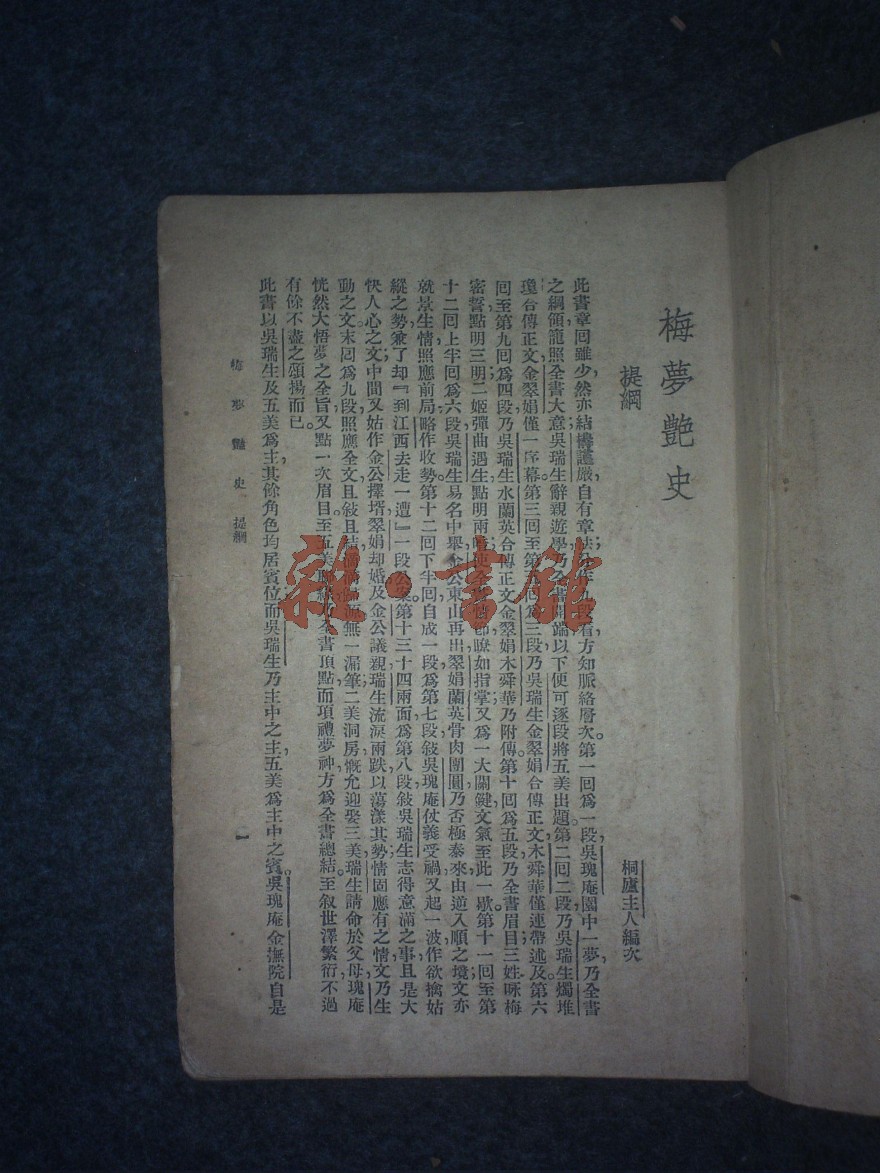 梅夢艷史
提綱
桐廬主人編次
此書章回雖少,然亦結構謹嚴,自有章法,作段看,方知脈絡層次。第一回爲一段,吳瑰庵園中一夢,乃全書
之綱領,籠照全書大意,吳瑞生辭親遊學,乃全書開端,以下便可逐段將五美出題。第二回二段,乃吳瑞生燭堆
瓊台傳正文,金翠娟僅一序幕。第三回至第爲三段,乃吳瑞生金翠娟合傳正文,木舜華僅連帶述及。第六
回至第九回爲四段,乃吳瑞生水蘭英合傳正文,金翠娟木舜華乃附傳。第十回爲五段,乃全書眉目,三姓咏梅
密誓,點明三明二姬彈曲遇生,點明兩使全瞭如指掌,又爲一大關鍵,文氣至此一歇。第十一回至第
十二回上半回爲六段,吳瑞生易名中舉,金公東山再出,翠娟蘭英骨肉團圓,乃否極泰來,由逆入順之境,文亦
就景生情,照應前局,略作收勢。第十二回下半回自成一段,爲第七段,敍吳瑰庵仗義受禍,又起一波,作欲擒姑
縱之勢,兼了却『到江西去走一遭』一段公案。第十三十四兩面爲第八段,敍吳瑞生志得意滿之事,且是大
快人心之文,中間又姑作金公擇壻,翠娟却婚,及金公議親,瑞生流淚兩跌,以蕩漾其勢,情固應有之情,文乃生
動之文。末回爲九段,照應全文,且敍且結,無一漏筆,二美洞房,慨允迎娶三美,瑞生請命於父母,瑰庵
恍然大悟夢之全旨,又點一次眉目,至五美全書頂點,而項禮夢神,方爲全書總結。至敘世澤繁衍,不過
有餘不盡之頌揚而已。
此書以吳瑞生及五美爲主,其餘角色均居賓位,而吳瑞生乃主中之主,五美爲主中之賓。吳瑰庵金撫院自是
梅夢艷史 提綱
一
雜·書館